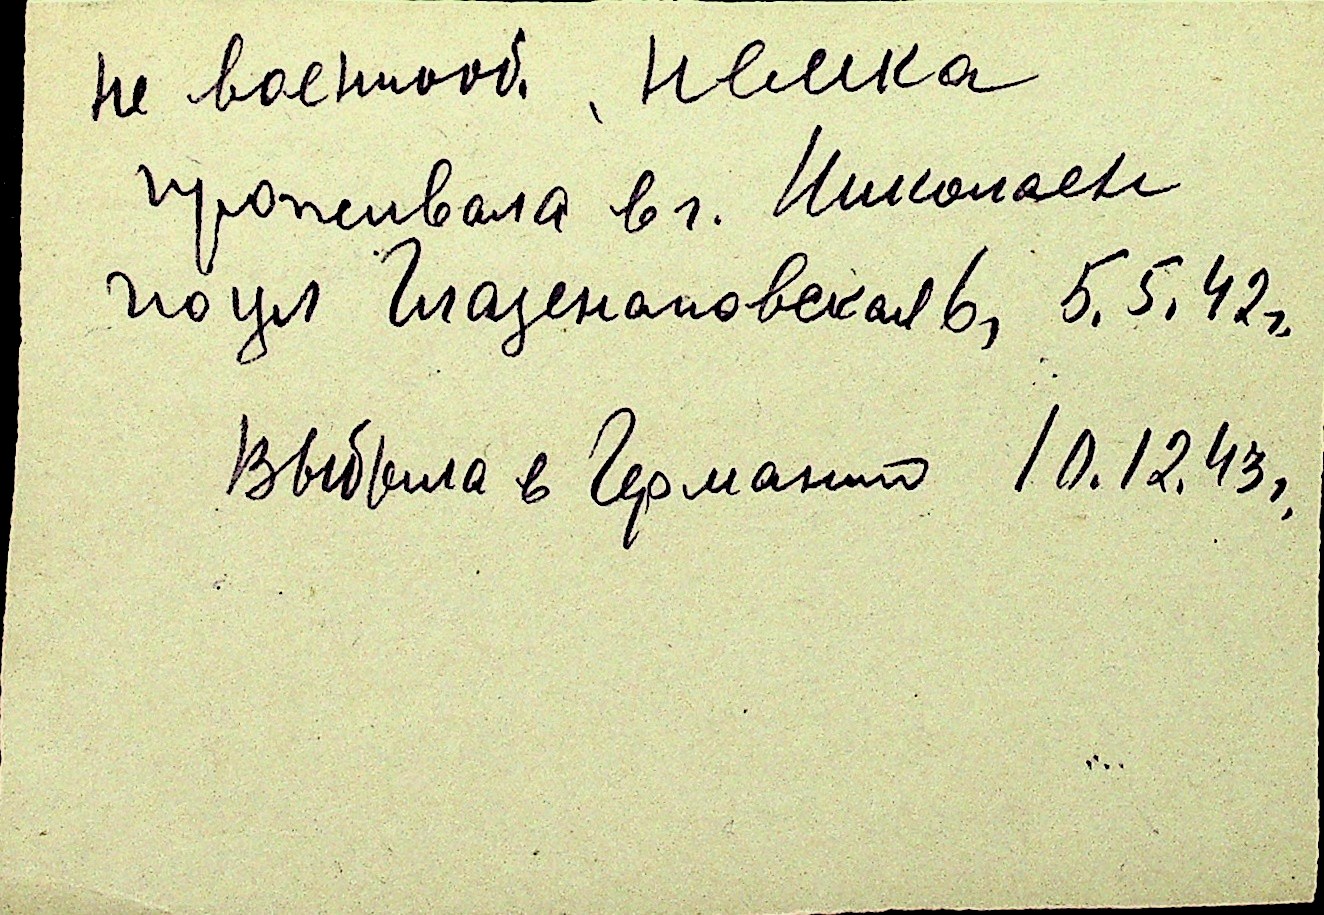 не военнооб., немка
проживала в г. Николаен
по ул Глазенаповская 6, 5.5.42г.
Выбыла в Германию 10.12.43г.